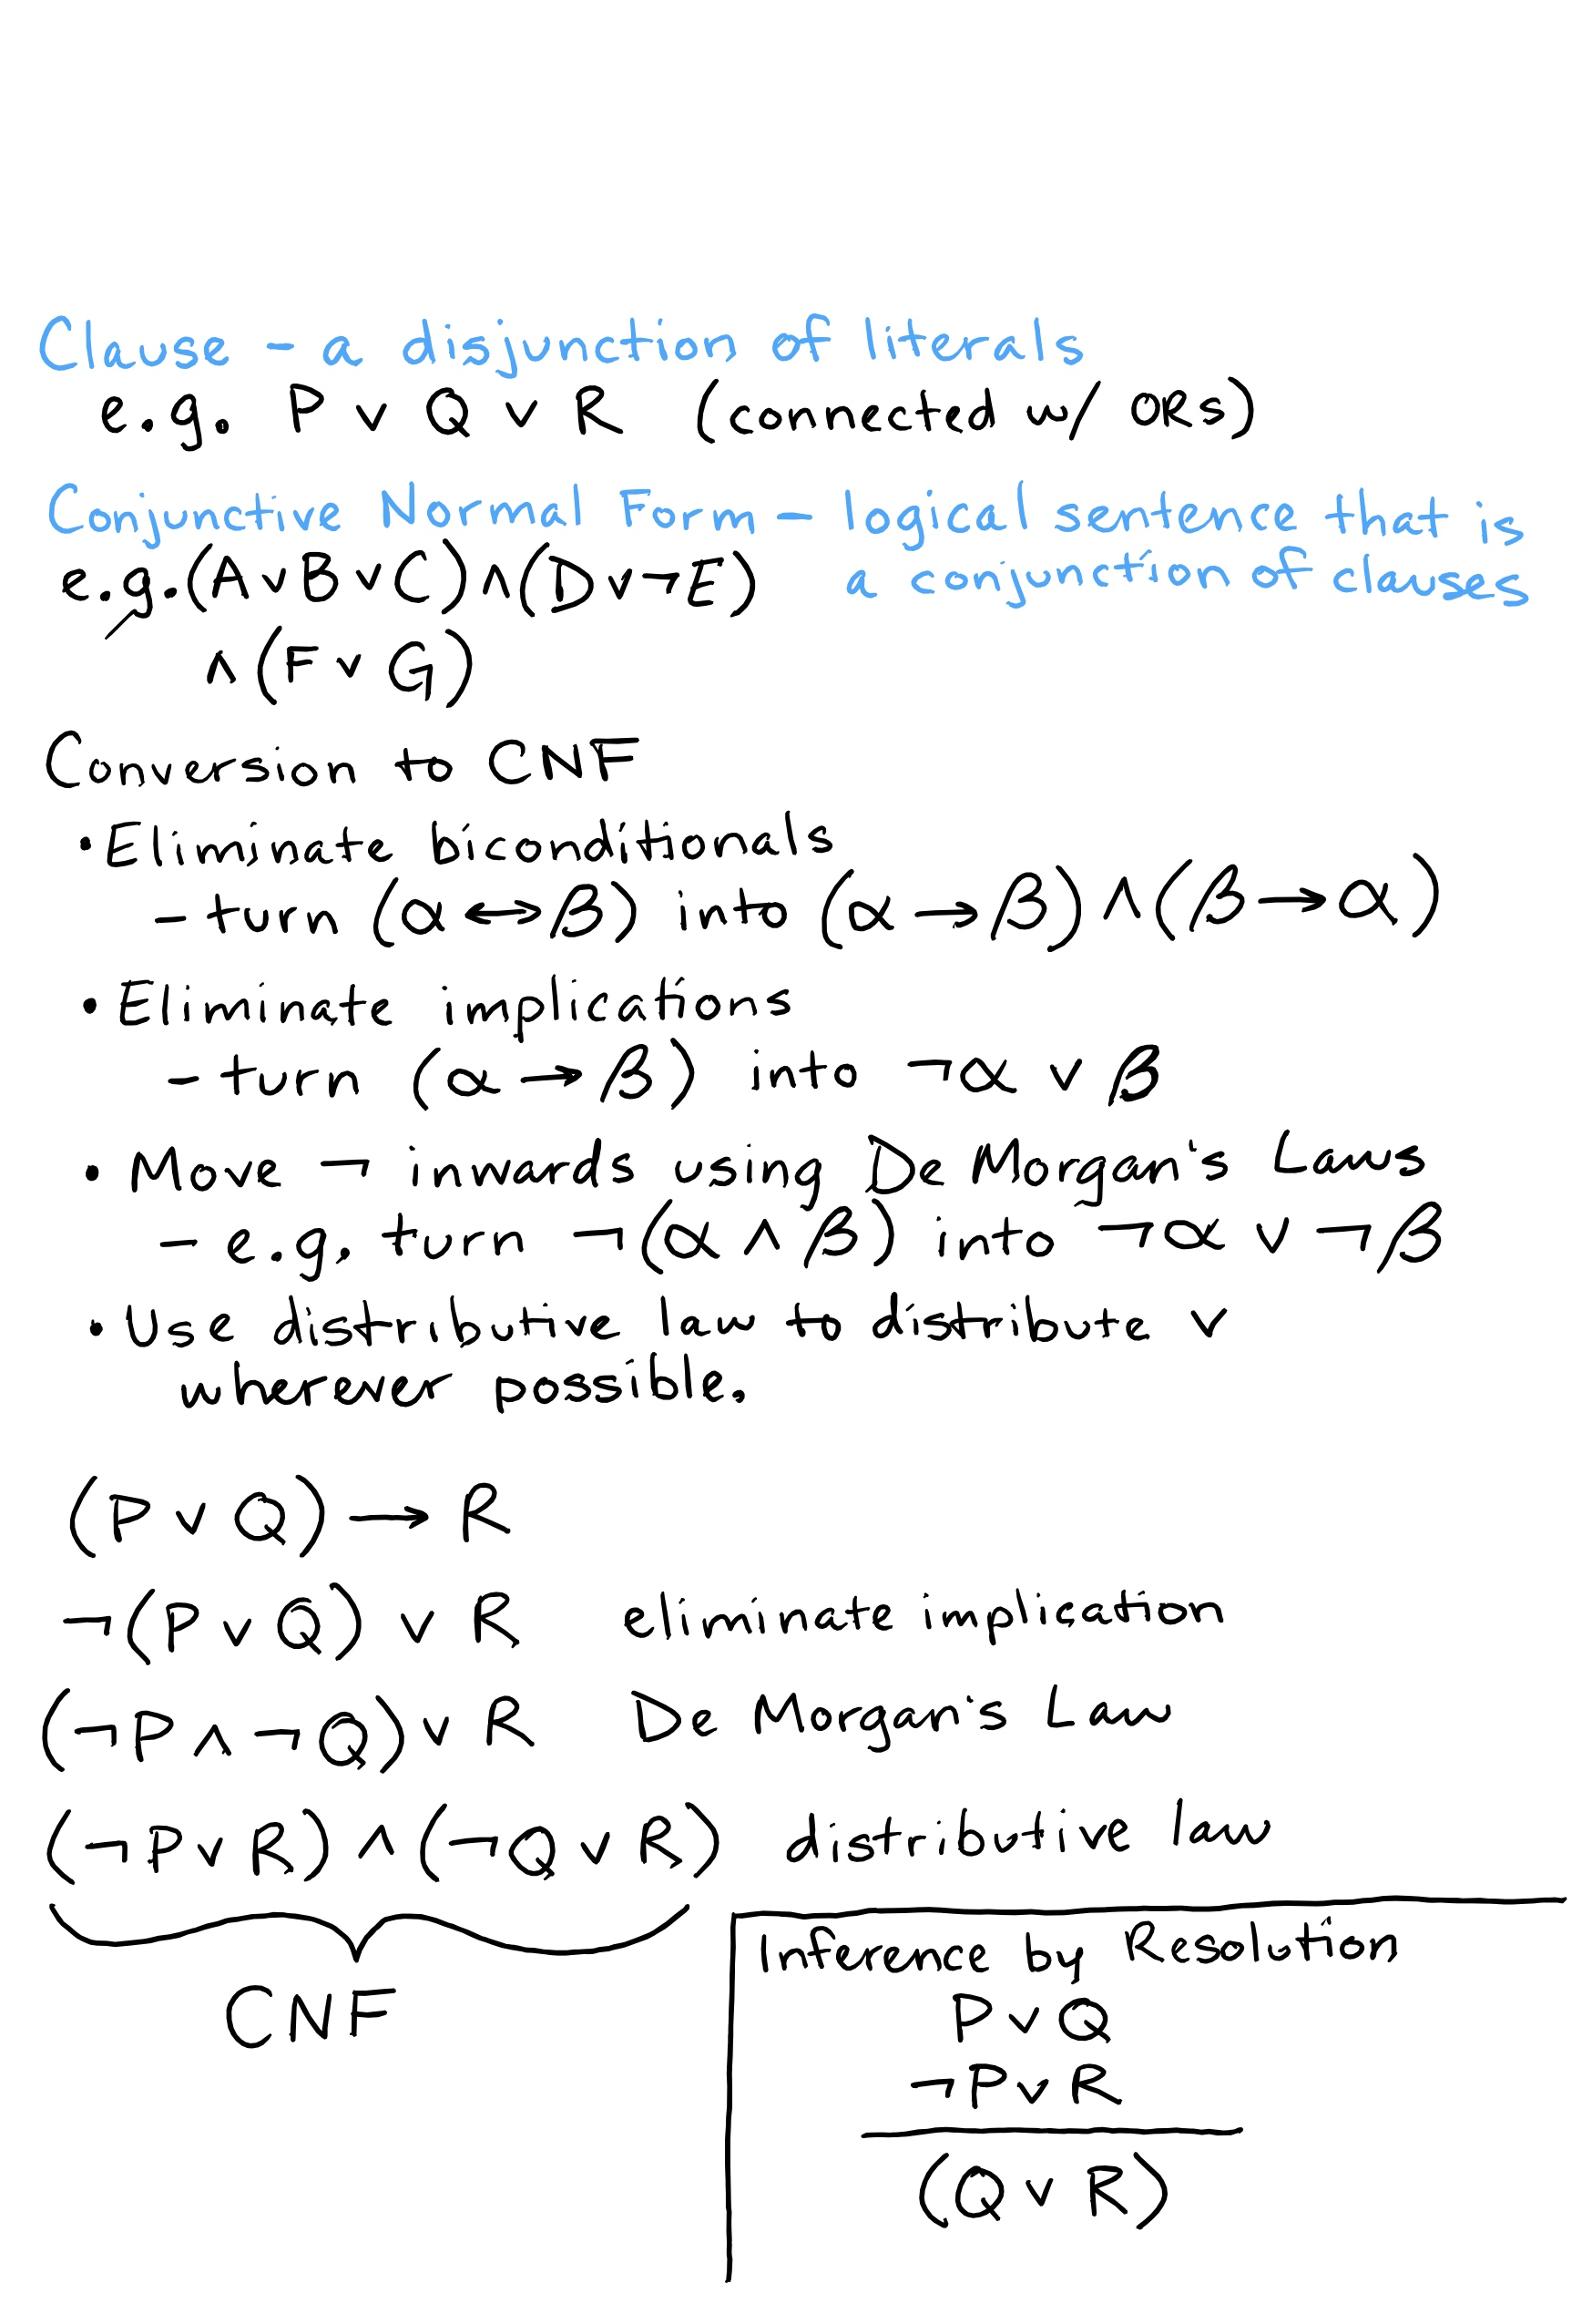 Clause - a disjunction of literals
e.g. P ∨ Q ∨ R (connected w/ ORs)
Conjunctive Normal Form - logical sentence that is
a conjunction of clauses
e.g. (A ∨ B ∨ C) ∧ (D ∨ ¬E)
∧ (F ∨ G)
Conversion to CNF
• Eliminate biconditionals
- turn (α ↔ β) into (α → β) ∧ (β → α)
• Eliminate implications
- turn (α → β) into ¬α ∨ β
• Move ¬ inwards using De Morgan's Laws
- e.g. turn ¬(α ∧ β) into ¬α ∨ ¬β
• Use distributive law to distribute ∨
wherever possible.
(P ∨ Q) → R
¬(P ∨ Q) ∨ R eliminate implication
(¬P ∧ ¬Q) ∨ R De Morgan's Law
(¬P ∨ R) ∧ (¬Q ∨ R) distributive law
CNF
Inference by Resolution
P ∨ Q
¬P ∨ R
(Q ∨ R)